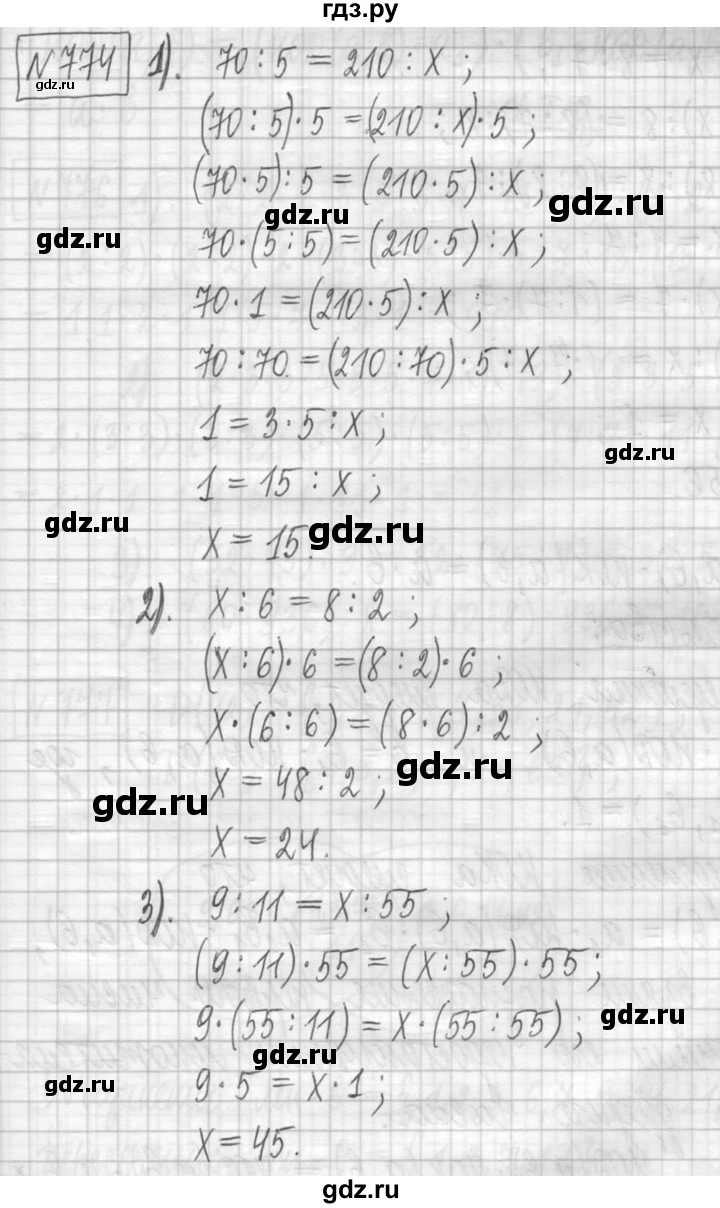 гдз.ру
№774 1). 70 : 5 = 210 : x ;
gdz.ru
(70 : 5) · 5 = (210 : x) · 5 ;
(70 · 5) : 5 = (210 · 5) : x ;
gdz.ru gdz.ru
gdz.ru
70 · (5 : 5) = (210 · 5) : x ;
70 · 1 = (210 · 5) : x ;
70 : 70 = (210 : 70) · 5 : x ;
1 = 3 · 5 : x ;
gdz.ru
1 = 15 : x ;
gdz.ru gdz.ru
x = 15.
2). x : 6 = 8 : 2 ;
(x : 6) · 6 = (8 : 2) · 6 ;
x · (6 : 6) = (8 · 6) : 2 ;
gdz.ru
x = 48 : 2 ;
gdz.ru
x = 24.
3). 9 : 11 = x : 55 ;
(9 : 11) · 55 = (x : 55) · 55 ;
9 · (55 : 11) = x · (55 : 55) ;
gdz.ru
gdz.ru
9 · 5 = x · 1 ;
gdz.ru
x = 45.
gdz.ru